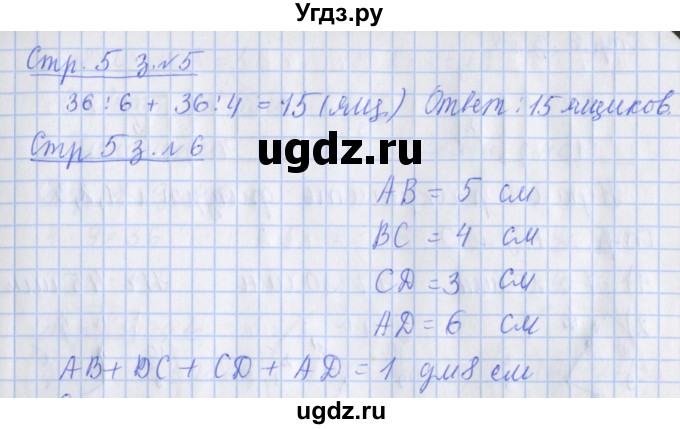 Угдз.ру
Стр. 5 з. №5
36 : 6 + 36 : 4 = 15 (ящ.) Ответ : 15 ящиков.
Стр 5 з. №6
ugdz.ru
AB = 5 см
BC = 4 см
CD = 3 см
AD = 6 см
AB + BC + CD + AD = 1 дм 8 см
ugdz.ru
ugdz.ru